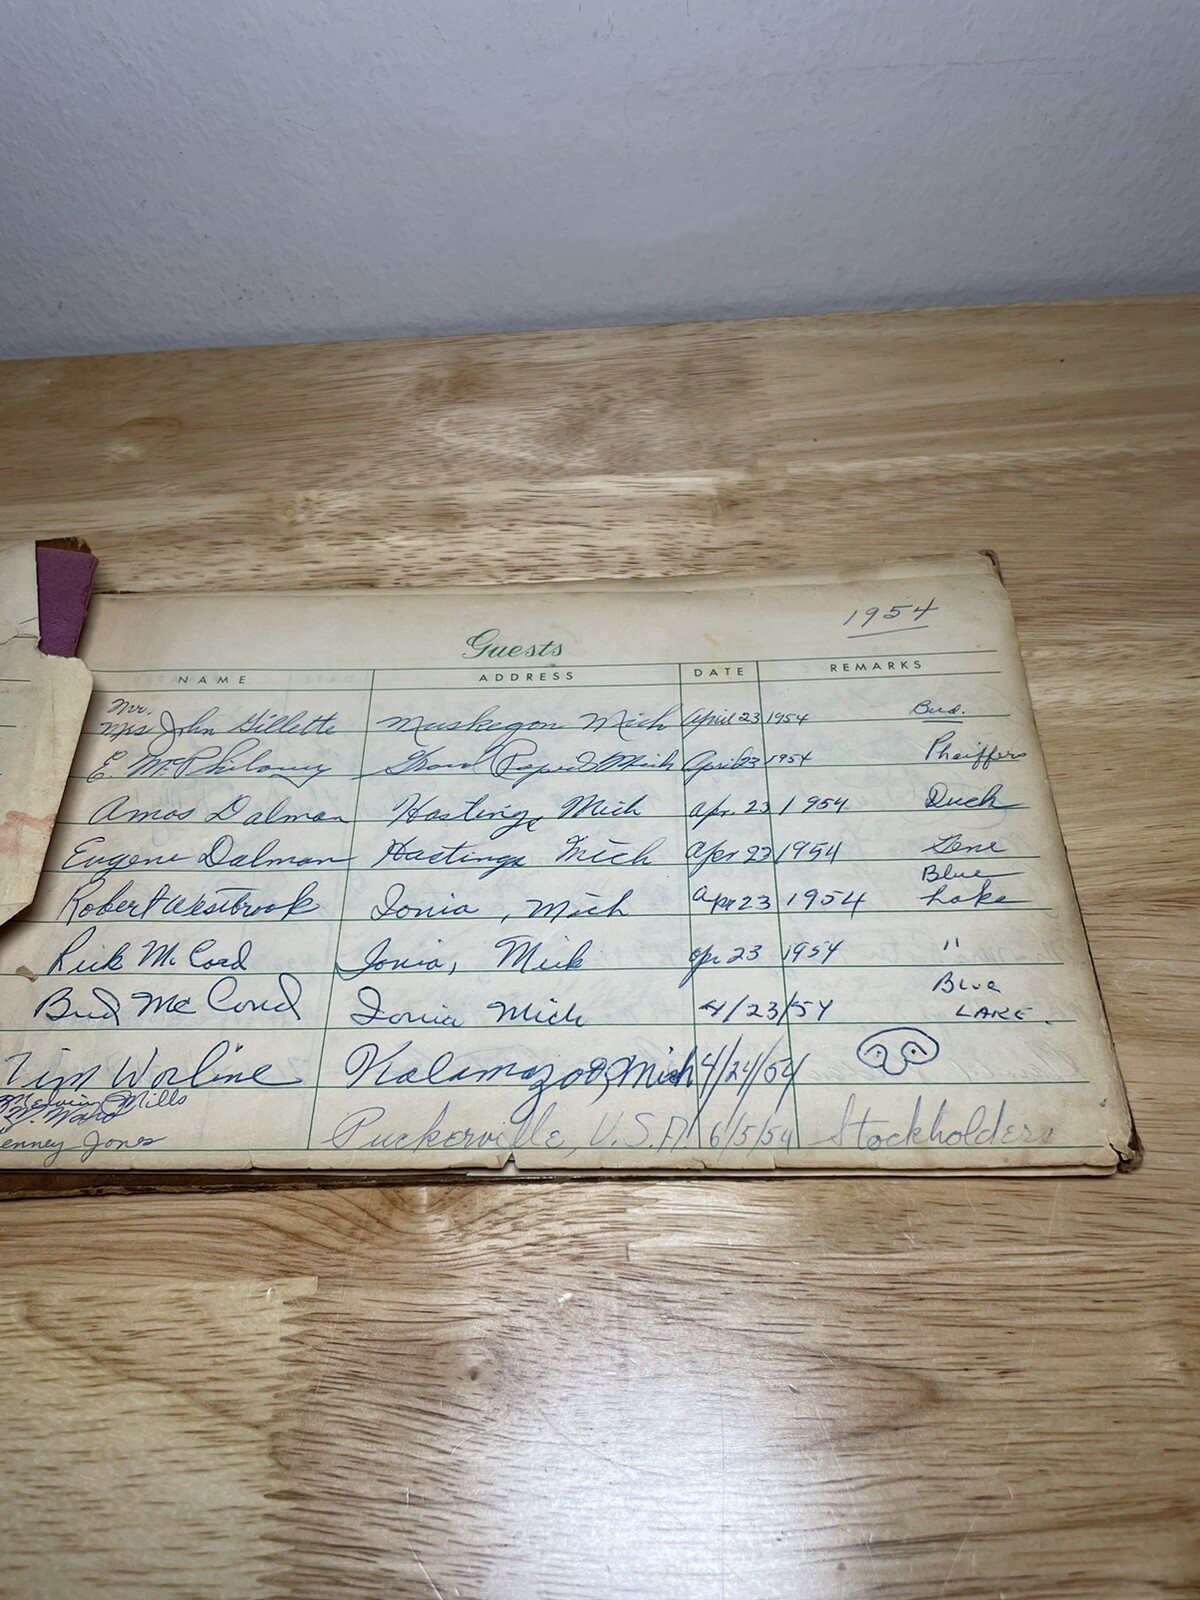 1954
Guests
NAME ADDRESS DATE REMARKS
Mr.
Mrs John Gillette Muskegon Mich April 23 1954 Bud.
E. McPhilamy Grand Rapids Mich April 23 1954 Phaiffers
Amos Dalman Hastings Mich Apr. 23 1954 Duck
Eugene Dalman Hastings Mich Apr 23 1954 Gene
Robert Westbrook Ionia, Mich Apr 23 1954 Blue Lake
Rick McCord Ionia, Mich Apr 23 1954 "
Bud McCord Ionia Mich 4/23/54 Blue LAKE.
Tim Worline Kalamazoo, Mich 4/24/54
Melvin Mills
Ward
enney Jones Puckerville, U.S.A. 6/5/54 Stockholders